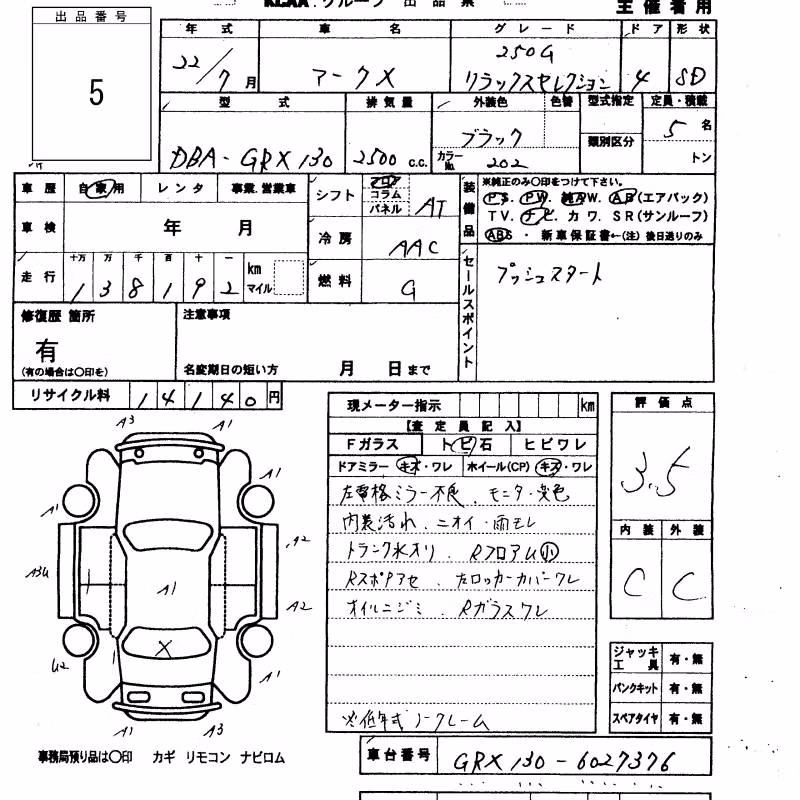 KCAA グループ 出品票 主催者用
出品番号
5
年式 車名 グレード ドア 形状
22/7月 マークX 250G リラックスセレクション 4 SD
型式 排気量 外装色 色替 型式指定 定員・積載
類別区分
DBA-GRX130 2500 c.c. ブラック カラーNo. 202 5名
トン
車歴 自家用 レンタ 事業.営業車
シフト フロア コラム パネル AT
装備品 ※純正のみ〇印をつけて下さい。
PS. PW. 純AW. AB(エアバック)
TV. ナビ. カワ. SR(サンルーフ)
ABS ・ 新車保証書←(注) 後日送りのみ
車検 年 月
冷房 AAC
走行 十万 万 千 百 十 一 km マイル
138192
燃料 G
セールスポイント プッシュスタート
修復歴 箇所 有
(有の場合は〇印を)
注意事項
名変期日の短い方 月 日まで
リサイクル料 14140円
現メーター指示 km
【査定員記入】
Fガラス トビ石 ヒビワレ
ドアミラー キズ・ワレ ホイール(CP) キズ・ワレ
左電格ミラー不良 . モニター変色
内装汚れ . ニオイ・雨モレ
トランク水オリ . Rフロアム小
Rスポアセ . 左ロッカーカバーワレ
オイルニジミ . Rガラスワレ
※低年式ノークレーム
評価点
3.5
内装 外装
C C
ジャッキ工具 有・無
パンクキット 有・無
スペアタイヤ 有・無
A3 A1
A1
A1
A2
A3U A1
A2
U2 X
A1
A1 A3
事務局預り品は〇印 カギ リモコン ナビロム
車台番号 GRX130-6027376